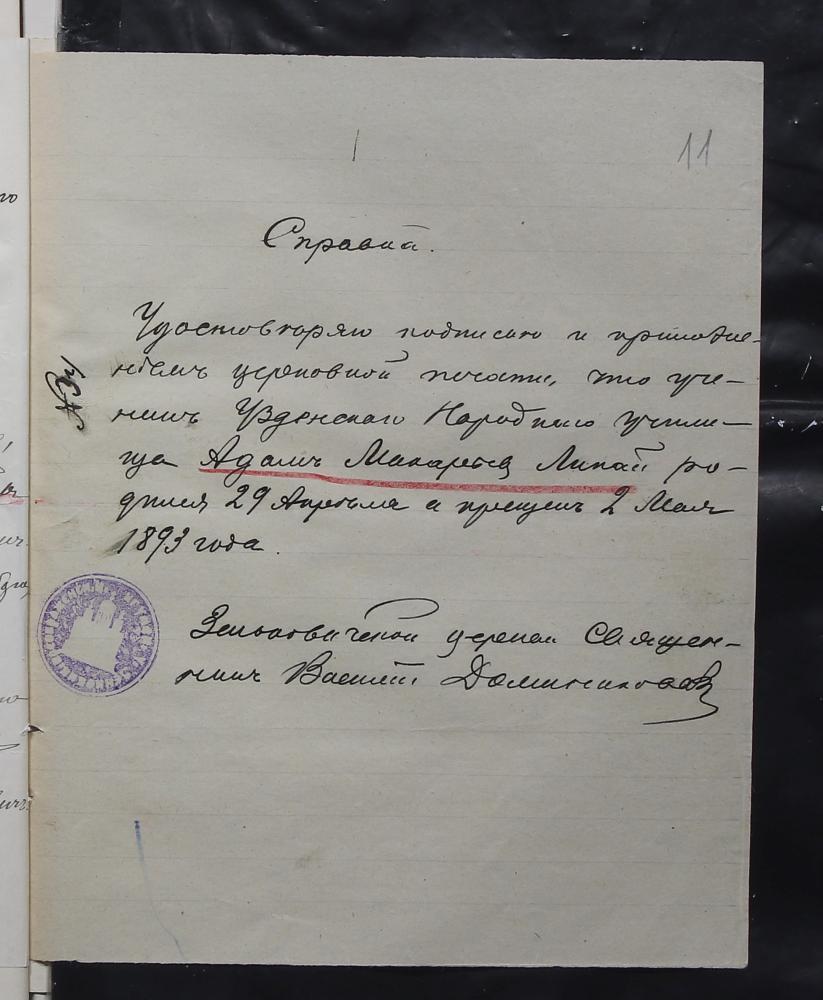 11
Справка.
Удостовѣряю подписью и приложе-
ніемъ церковной печати, что уче-
никъ Узденскаго Народнаго учили-
ща Адамъ Макарьевъ Липай ро-
дился 29 Апрѣля а крещенъ 2 Мая
1893 года.
№ 34
Зеньковичской церкви Священ-
никъ Василій Доминиковскій